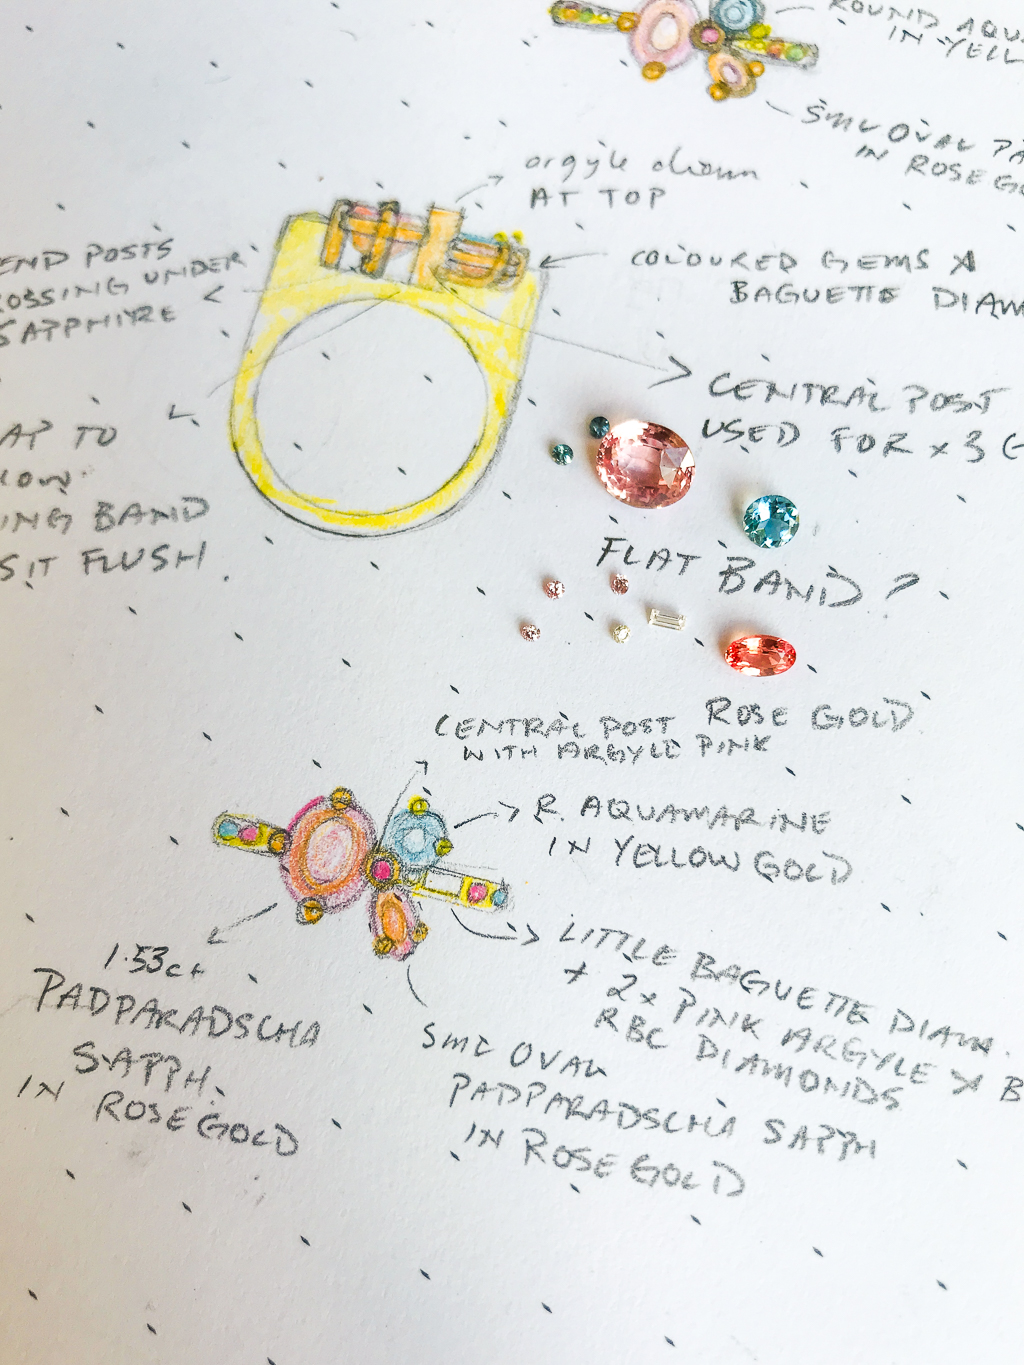 ROUND AQUA
IN YELL
SML OVAL PA
IN ROSE GO
argyle diam
AT TOP
END POSTS
ROSSING UNDER
SAPPHIRE
COLOURED GEMS &
BAGUETTE DIAM
CENTRAL POST
USED FOR x 3 G
AP TO
LOW
ING BAND
SIT FLUSH.
FLAT BAND?
ROSE GOLD
CENTRAL POST
WITH ARGYLE PINK
R. AQUAMARINE
IN YELLOW GOLD
1.53ct
PADPARADSCHA
SAPPH.
IN ROSE GOLD
LITTLE BAGUETTE DIAM.
+ 2x PINK ARGYLE & B
RBC DIAMONDS
SML OVAL
PADPARADSCHA SAPPH
IN ROSE GOLD